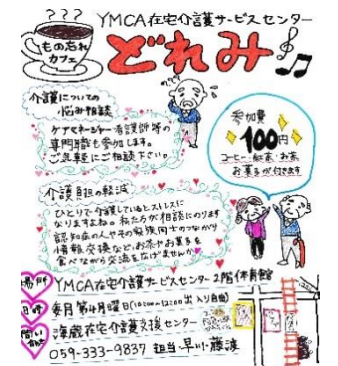 YMCA在宅介護サービスセンター
もの忘れ
カフェ
どれみ
介護についての
悩み相談
ケアマネージャー・看護師等の
専門職も参加します。
ご気軽にご相談下さい。
参加費
100円
コーヒー・紅茶・お茶
お菓子が付きます
介護負担の軽減
ひとりで介護しているとストレスに
なりますよね。私たちが相談にのります
認知症の人やその家族同士のつながり
情報交換など、お茶やお菓子を
食べながら交流を広げませんか
場所
YMCA在宅介護サービスセンター2階休養館
日時
毎月第4月曜日(10:00~12:00出入り自由)
問い
海蔵在宅介護支援センター
059-333-9837 担当・早川・藤波